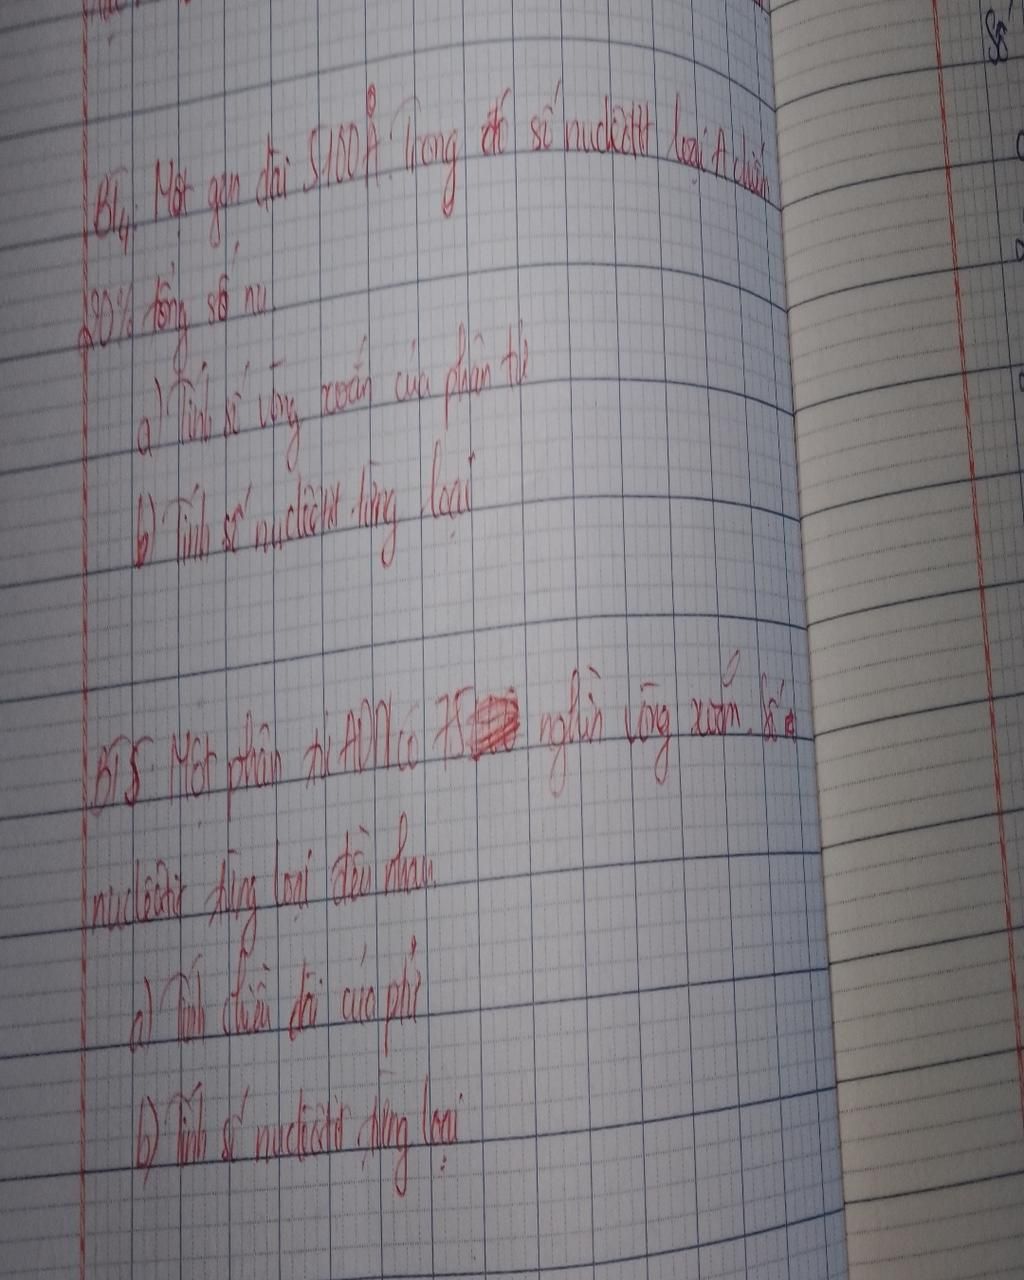 BT4. Một gen dài 5100Å. Trong đó số nuclêôtit loại A chiếm
20% tổng số nu
a) Tính số vòng xoắn của phân tử
b) Tính số nuclêôtit từng loại
BT5 Một phân tử ADN có 75 nghìn vòng xoắn. Số
nuclêôtit từng loại đều nhau.
a) Tính chiều dài của phtử
b) Tính số nuclêôtit từng loại